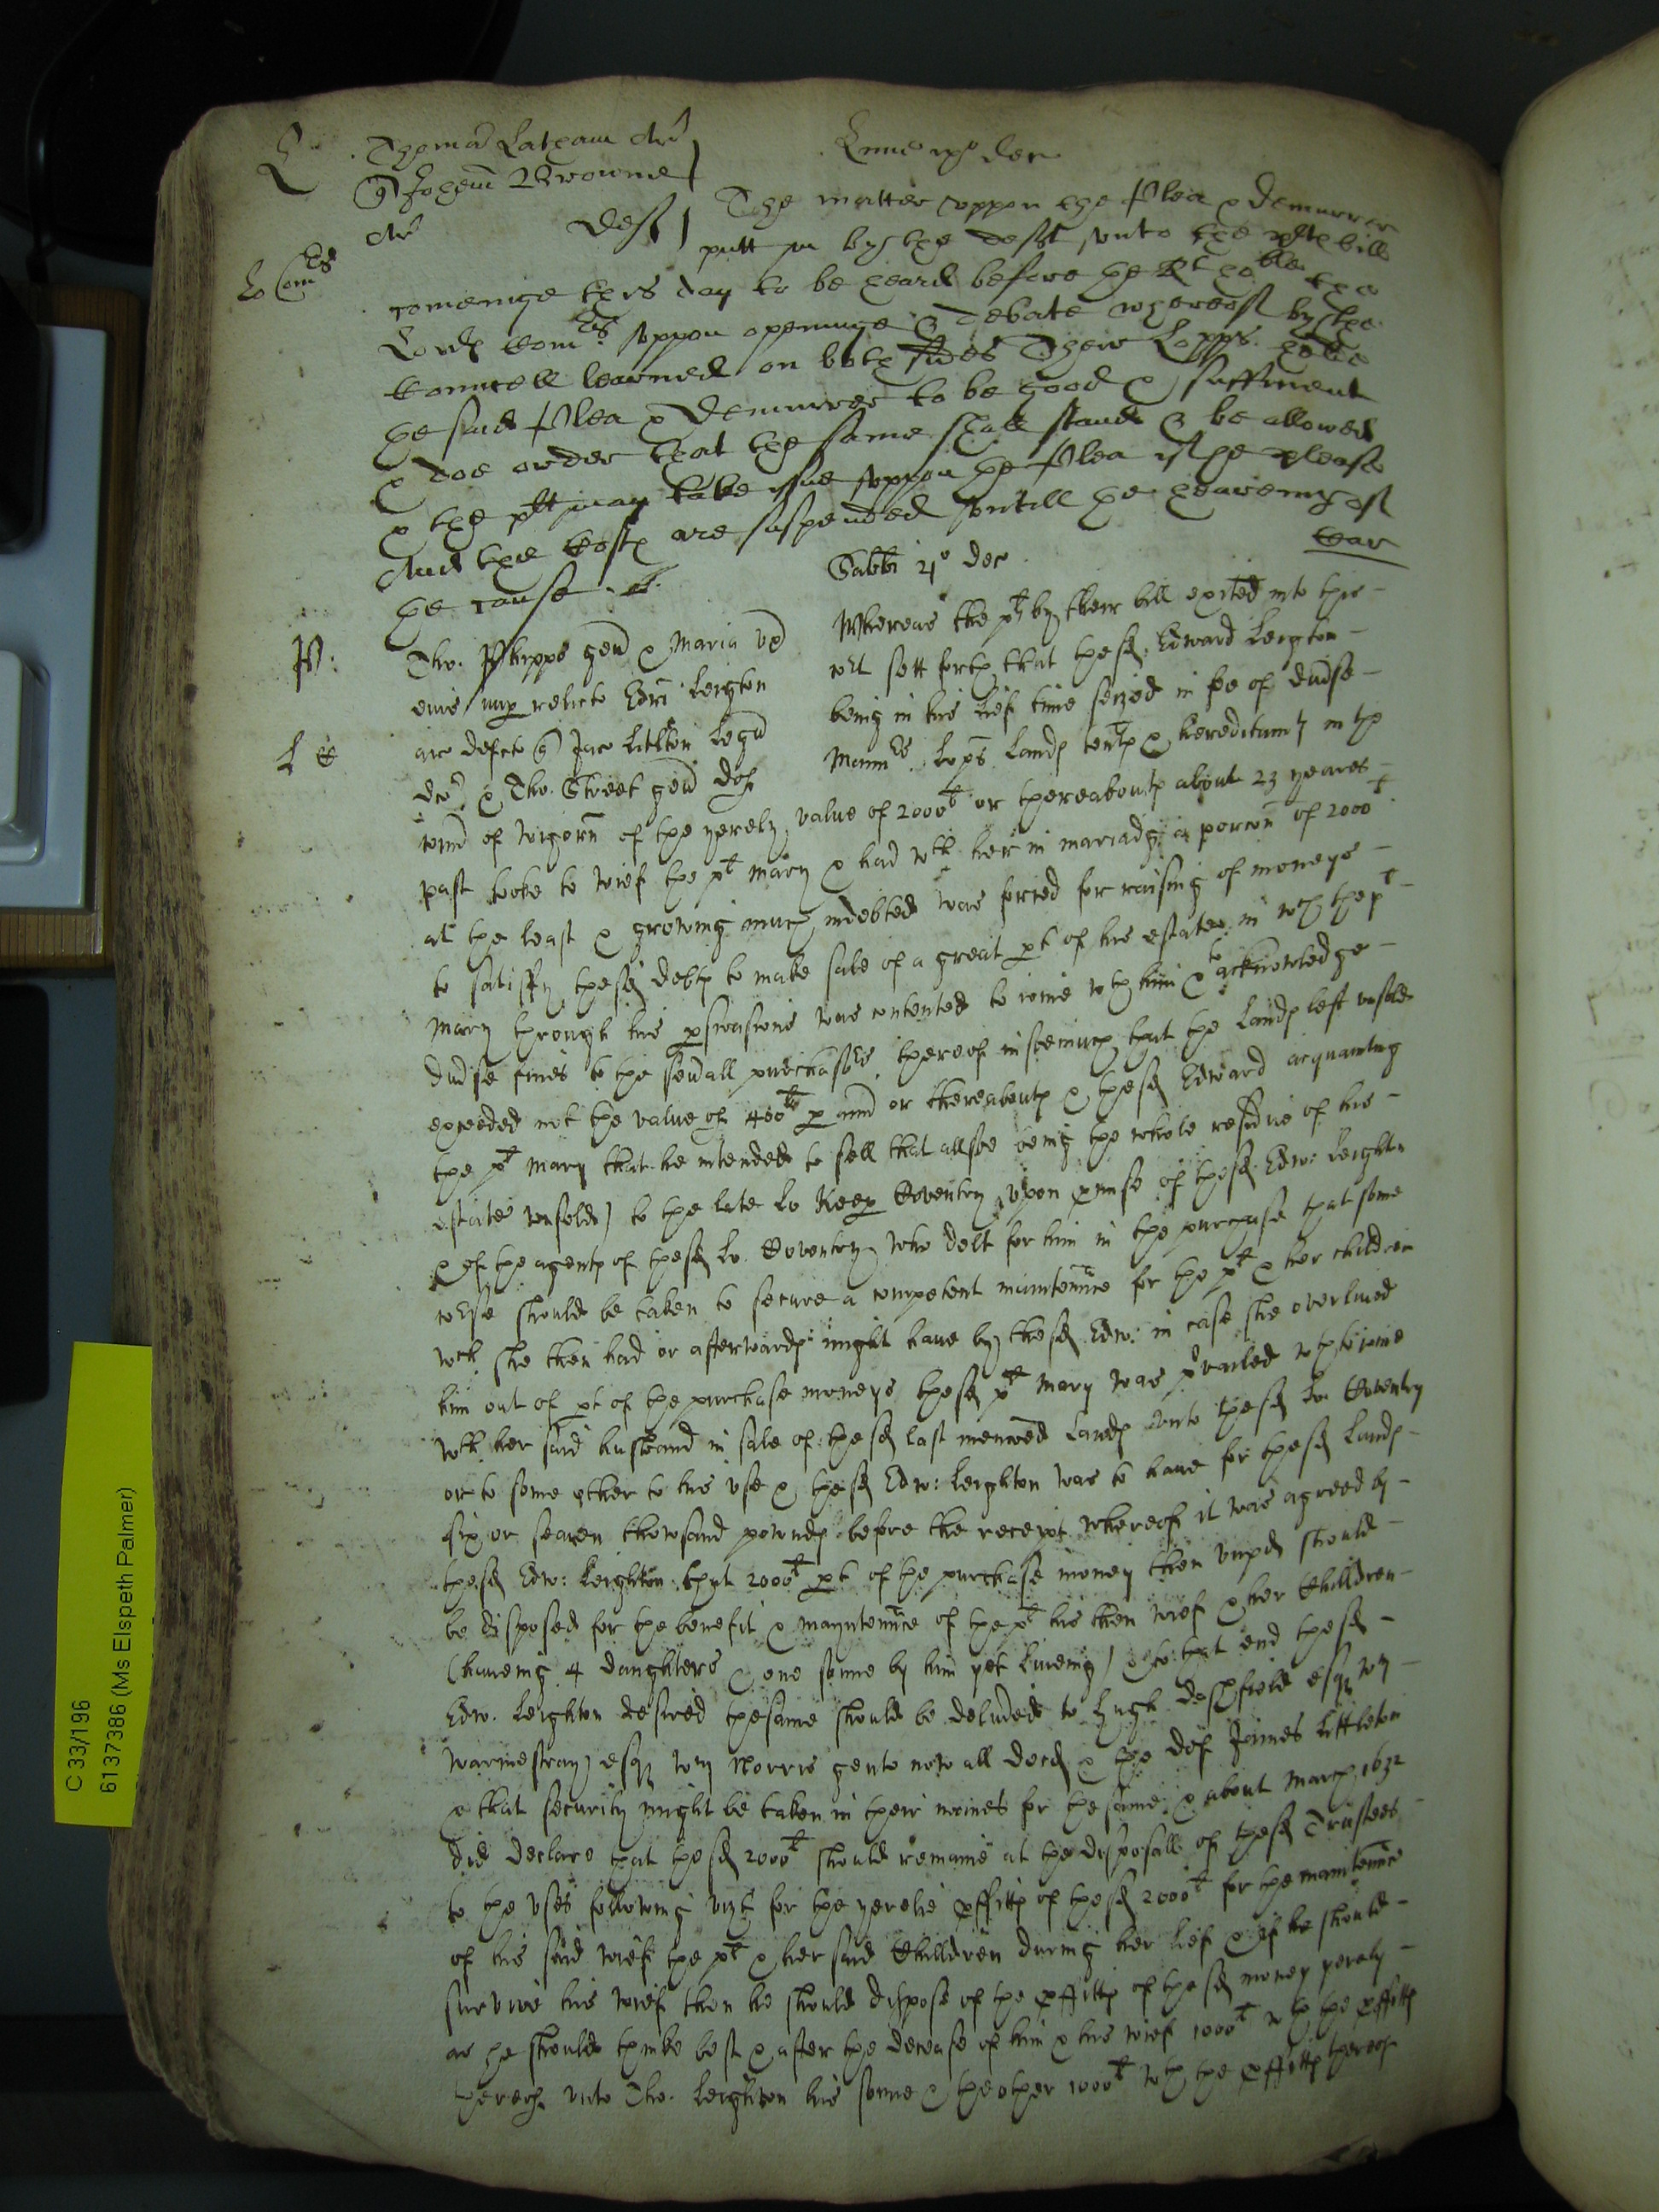 L Thomas Latham Ar
Johem Browne
Ar Deft
Lune xx° Dec
The matter uppon the Plea & demurrer
putt in by the deft unto the plts bill
Lo Comrs
comeinge this day to be heard before the Rt hoble the
Lords Comrs uppon openinge & debate whereof by the
Councell learned on both sides Their Lopps. held
the said Plea & Demurrer to be good & sufficient
& doe order that the same shall stand & be allowed
& the plt may take issue uppon the Plea if he please
And the Costs are suspended untill the heareing of
the cause
Sabbti 21° Dec
P:
Tho. Phipps gen & Maria ux
Whereas the pts by their bill exited into this
eius nup relicta Edri Leighton
Ct sett forth that the sd. Edward Leighton
being in his lief time seized in fee of divse
L C
ar defcto Jac Litlton
Mannrs. Lopps Lands tents & hereditamts in the
& Tho. Street gen defts
com of Wigorn of the yerely value of 2000l or thereabouts about 23 yeares
past tooke to wief the pt Mary & had wth her in mariadge a porcon of 2000l
at the least & growing much indebted was forced for raising of moneys
to satisfy the sd debts to make sale of a great pt of his estate in wch the pt
Mary through his pswasions was contented to ioine wth him & to acknowledge
divse fines to the sevall purchasers thereof in soemuch that the Lands left unsold
exceeded not the value of 400l p ann or thereabouts & the sd Edward acquainting
the pt Mary that he intended to sell that allsoe being the whole residue of his
estate unsold) to the late Lo Keep Coventry upon pmise of the sd. Edw: Leighton
& of the agents of the sd Lo. Coventry who delt for him in the purchase that some
course should be taken to secure a competent maintennce for the pt & her children
wch she then had or afterwards might have by the sd. Edw: in case she overlived
him out of pt of the purchase moneys the sd pt Mary was pvailed wth to ioine
wth her said husband in sale of the sd last menconed Lands unto the sd Lo. Coventry
or to some other to his use & the sd Edw: Leighton was to have for the sd Lands
six or seaven thowsand pownds before the receipt whereof it was agreed by
the sd Edw: Leighton that 2000l pt of the purchase money then unpd should
be disposed for the benefit & mayntennce of the pt his then wief & her Children
(haveing 4 daughters & one sonne by him yet liveing) & to that end the sd
Edw. Leighton desired the same should be delived to Hugh esqr Wm
Warmestrey esqr Wm Norris gent now all decd & the deft James Littleton
& that security might be taken in their names for the same & about March 1632
did declare that the sd 2000l should remaine at the disposall of the sd Trustees
to the uses following vizt for the yerelie pffitts of the sd 2000l for the maintennce
of his said wief the pt & her said Children during her lief & if he should
survive his wief then he should dispose of the pffitts of the sd money yerely
as he should thinke best & after the decease of him & his wief 1000l wth the pffitts
thereof unto Tho. Leighton his sonne & the other 1000l wth the pffitts thereof
C 33/196
6137386 (Ms Elspeth Palmer)